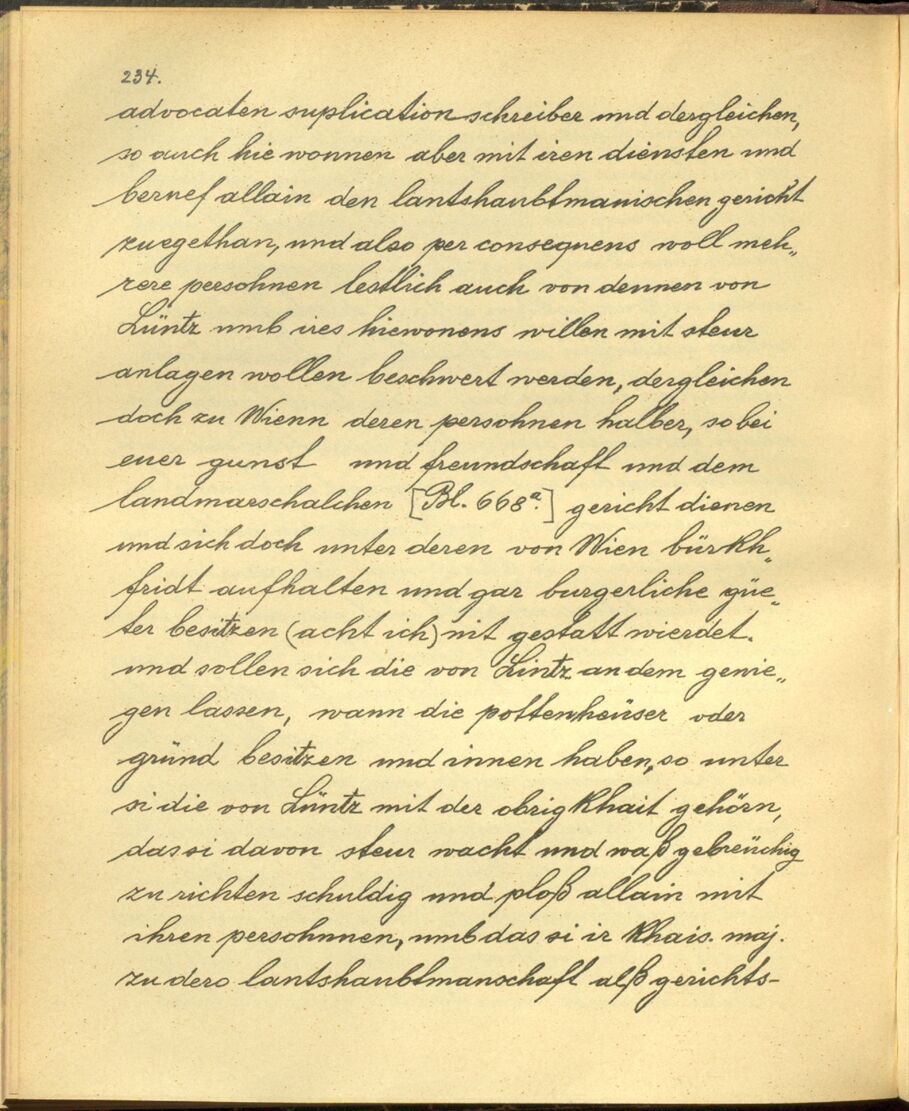 234.
advocaten suplication schreiber und dergleichen,
so auch hie wonnen aber mit iren diensten und
beruef allain den lantshaubtmanischen gericht
zuegethan, und also per consequens woll meh„
rere persohnen lestlich auch von dennen von
Lüntz umb ires hiewonens willen mit steur
anlagen wollen beschwert werden, dergleichen
doch zu Wienn deren persohnen halber, so bei
euer gunst und freundschaft und dem
landmarschalchen [Bl. 668ª.] gericht dienen
und sich doch unter deren von Wien bürkh„
fridt aufhalten und gar burgerliche güe„
ter besitzen (acht ich) nit gestatt wierdet.
und sollen sich die von Lintz an dem genie„
gen lassen, wann die pottenheüser oder
gründ besitzen und innen haben, so unter
si die von Lüntz mit der obrigkhait gehörn,
das si davon steur wacht und waß gebreüchig
zu richten schuldig und ploß allain mit
ihren persohnnen, umb das si ir khais. maj.
zu dero lantshaubtmanschaft alß gerichts-